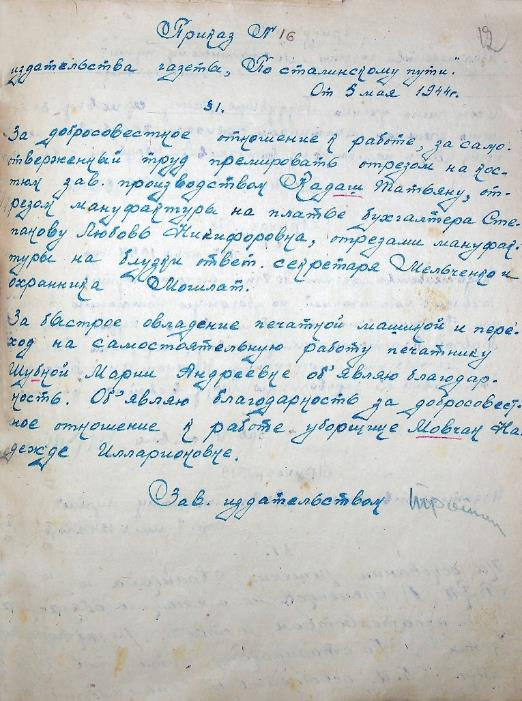 12
Приказ № 16
издательства газеты "По сталинскому пути".
От 5 мая 1944г.
§1.
За добросовестное отношение к работе, за само-
отверженный труд премировать отрезом на кос-
тюм зав. производством Кадаш Татьяну, от-
резом мануфактуры на платье бухгалтера Сте-
панову Любовь Никифоровна, отрезами мануфак-
туры на блузки ответ. секретаря Мельченко и
охранника Могилат.
За быстрое овладение печатной машиной и пере-
ход на самостоятельную работу печатнику
Шубной Марии Андреевне об'являю благодар-
ность. Об'являю благодарность за добросовест-
ное отношение к работе уборщице Мовчан На-
дежде Илларионовне.
Зав. издательством